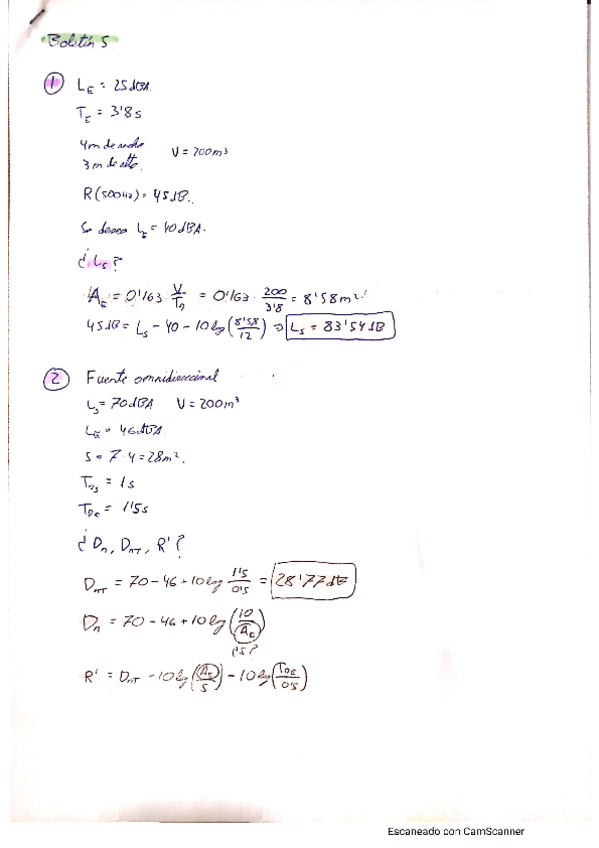 Boletín 5
1 L_E = 25 dBA.
T_E = 3'8 s
4m de ancho
3m de alto.
V = 200 m³
R (500Hz) = 45 dB.
Se desea L_E = 40 dBA.
¿L_s?
A_E = 0'163 V/T_n = 0'163 · 200/3'8 = 8'58 m²
45 dB = L_s - 40 - 10 lg (8'58/12) ⇒ L_s = 83'54 dB
2 Fuente omnidireccional
L_s = 70 dBA V = 200 m³
L_E = 46 dBA
S = 7 · 4 = 28 m².
T_ns = 1 s
T_DE = 1'5 s
¿D_n, D_nT, R'?
D_nT = 70 - 46 + 10 log 1'5/0'5 = 28'77 dB
D_n = 70 - 46 + 10 lg (10/A_E)
R' = D_nT - 10 lg (A_E/S) - 10 lg (T_DE/0'5)
Escaneado con CamScanner